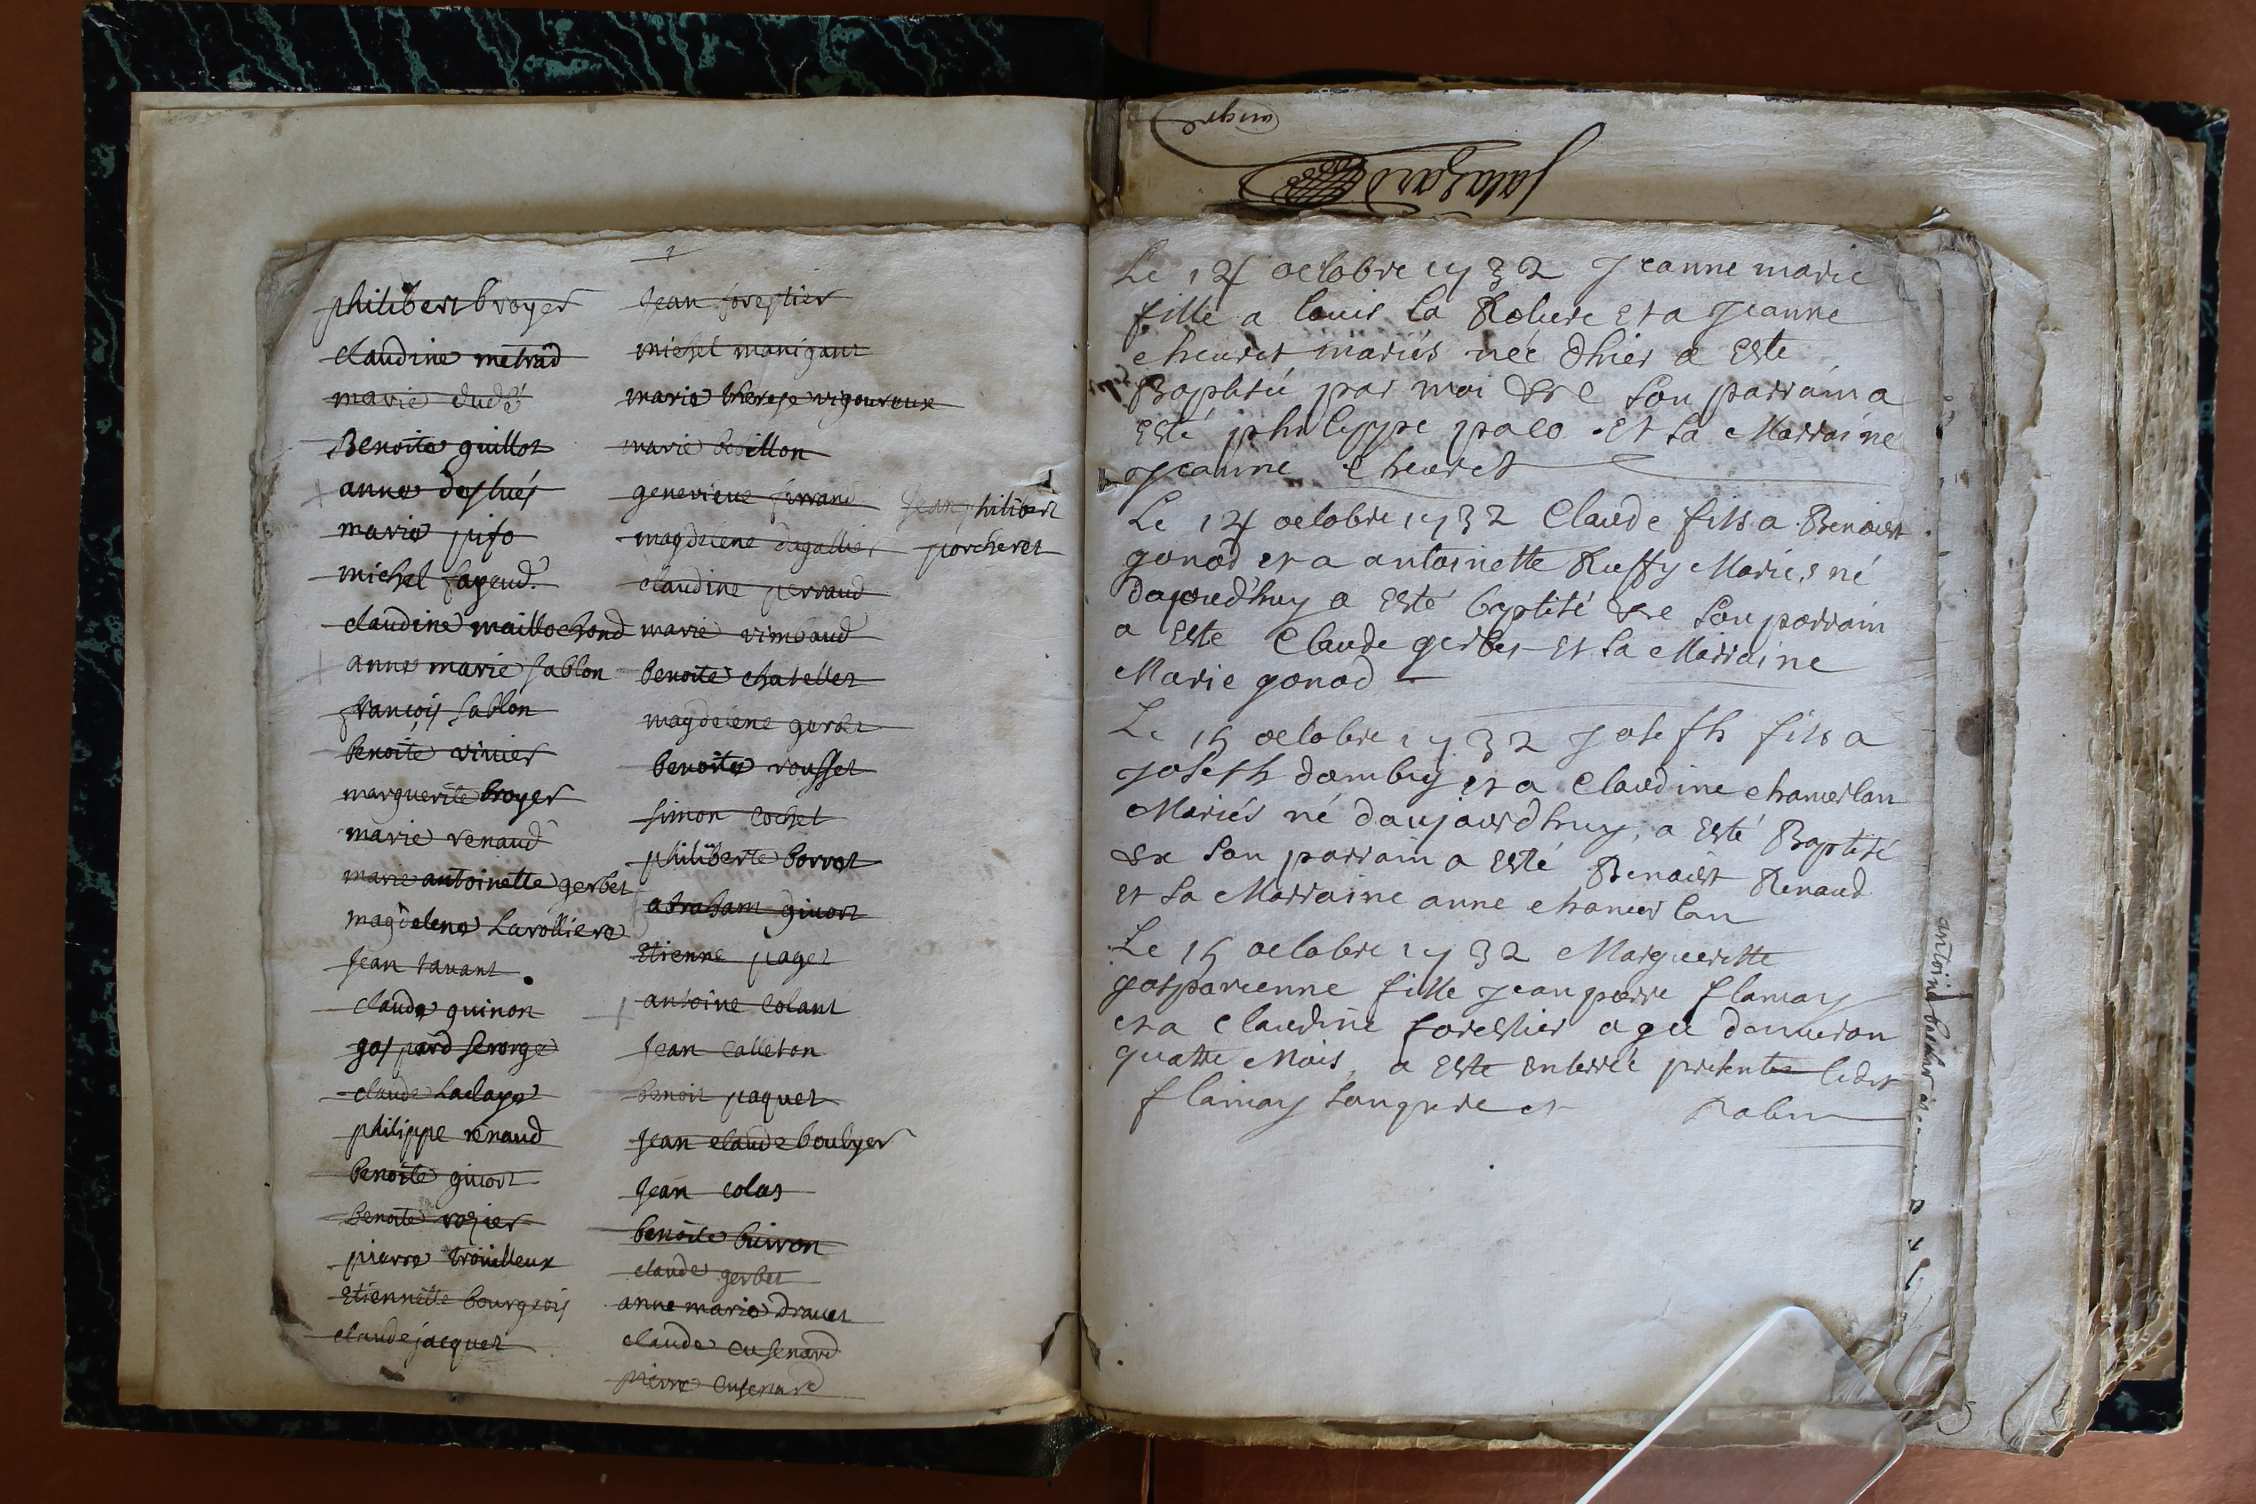 philibert broyer
claudine metrad
marie dudé
Benoite guillot
anne deshués
marie pifo
michel fayeud
claudine maillochond
anne marie sablon
françois sablon
benoite vivier
marguerite broyer
marie renaud
marie antoinette gerbet
magdelene Larolliere
Jean tavant
claude guinon
gaspard serorge
claude Laclaye
philippe renaud
benoite guiort
benoite rozier
pierre trouilleux
Etiennette bourgeois
claude jacquet
Jean forestier
michel manigant
marie therese vigoureux
marie bouillon
genevieve ferrand
magdelene dagallier
claudine perraud
marie rimbaud
benoite chatellet
magdelene gerbet
benoite rousset
simon cochet
philiberte borrot
abraham guiort
Etienne paget
antoine Colant
Jean Calleton
benoit paquet
Jean claude boulyer
Jean colas
benoite buiron
claude gerbet
anne marie Dravet
claude cusenard
pierre cusenard
Jean philibert
porcheret
Salazard
Le 14 octobre 1732 Jeanne marie
fille a louis la Roliere et a Jeanne
cheuret mariés née dhier a este
Baptisée par moi son parrain a
esté philippe et sa Marraine
Jeanne Cheuret
Le 14 octobre 1732 Claude fils a Benoist
gonod et a antoinette Ruffy Mariés né
daujourd'huy a esté baptisé son parrain
a este Claude gerbet et sa Marraine
Marie gonod
Le 15 octobre 1732 Joseph fils a
Joseph dombey et a Claudine chamerlan
Mariés né daujourdhuy, a esté Baptisé
son parrain a esté Benoist Renaud
et sa Marraine anne chamerlan
Le 15 octobre 1732 Margueritte
gasparienne fille Jean pierre flamay
et a Claudine forestier agée denviron
quatre Mois, a este enterrée presente ledit
flamay son pere et
antoine